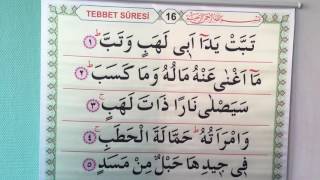 TEBBET SÛRESİ 16 بِسْمِ اللّٰهِ الرَّحْمٰنِ الرَّحِيمِ
تَبَّتْ يَدَٓا اَبٖي لَهَبٍ وَتَبَّ ١
مَٓا اَغْنٰى عَنْهُ مَالُهُ وَمَا كَسَبَ ٢
سَيَصْلٰى نَارًا ذَاتَ لَهَبٍ ٣
وَامْرَاَتُهُ حَمَّالَةَ الْحَطَبِ ٤
فٖي جٖيدِهَا حَبْلٌ مِنْ مَسَدٍ ٥